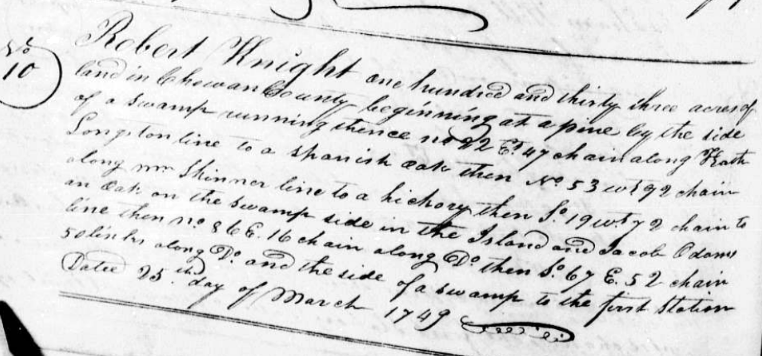 No
10
Robert Knight one hundred and thirty three acres of
land in Chowan County beginning at a pine by the side
of a swamp running thence no 22 Et 47 chain along Kath
Longston line to a spanish oak then No. 53 wt 92 chain
along mr Skinner line to a hickory then So. 19 wt 72 chain to
an oak on the swamp side in the Island and Jacob Odoms
line then no. 86 E. 16 chain along Do. then So. 67 E. 52 chain
50 links along Do. and the side of a swamp to the first Station
Dated 25th day of March 1749